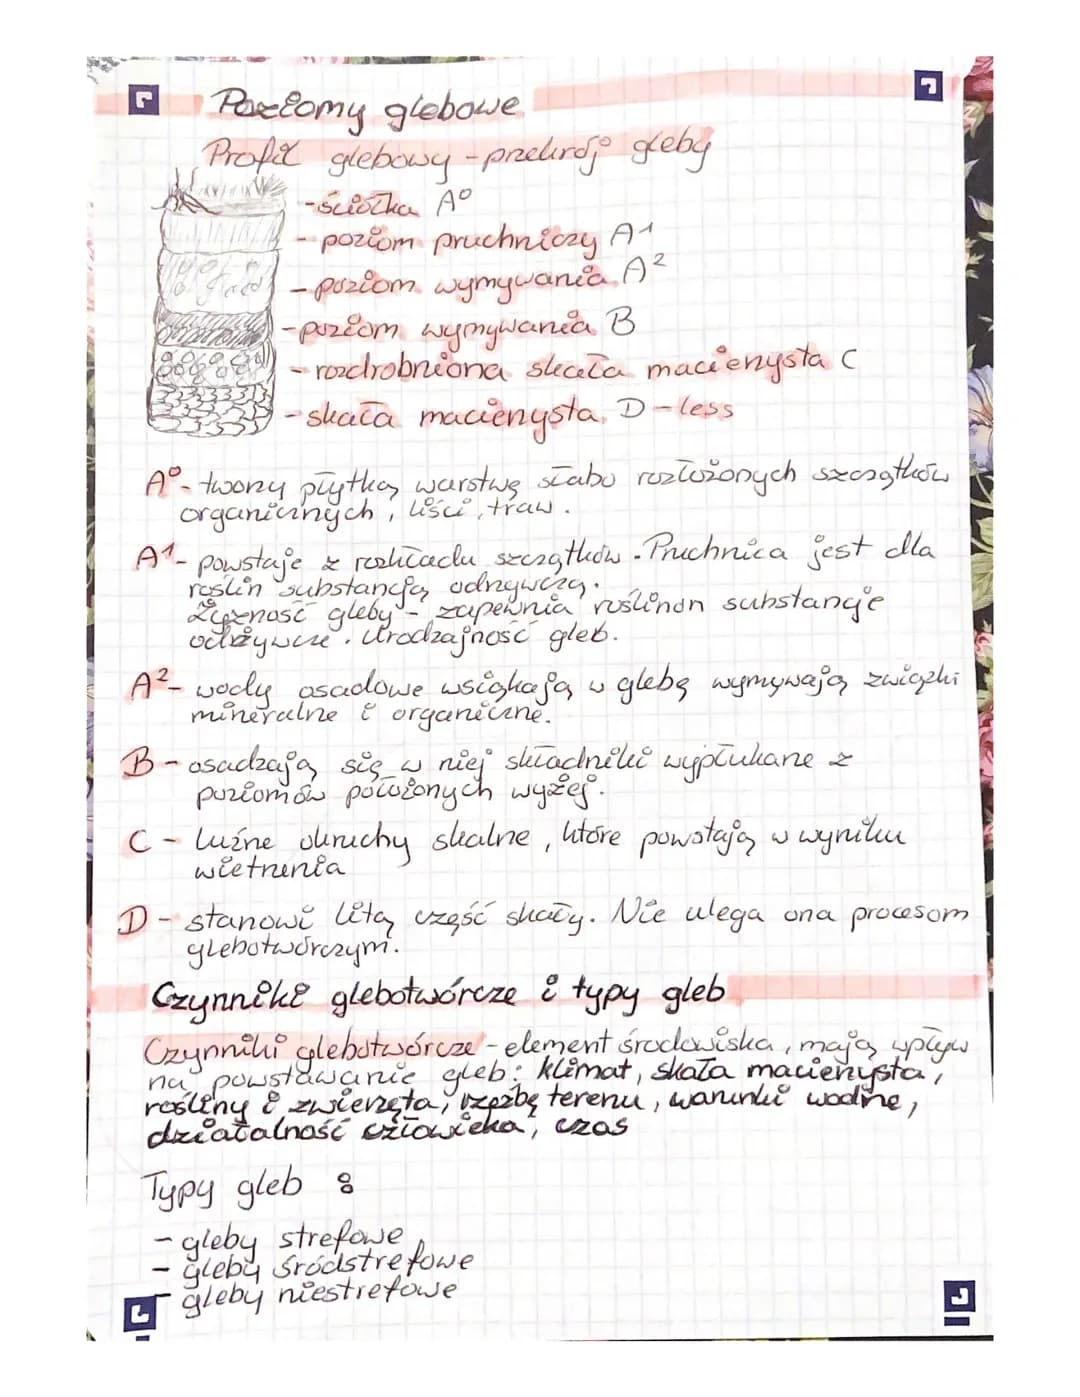 Poziomy glebowe
Profil glebowy - przekrój gleby
- ściółka A⁰
- poziom pruchniczy A¹
- poziom wymywania A²
- poziom wymywania B
- rozdrobniona skała macierzysta C
- skała macierzysta D - less
A⁰ - tworzy płytką warstwę słabo rozłożonych szczątków
organicznych, liści, traw.
A¹ - powstaje z rozkładu szczątków. Pruchnica jest dla
roślin substancją odżywczą.
Żyzność gleby - zapewnia roślinon substancje
odżywcze. Urodzajność gleb.
A² - wody osadowe wsiąkają w glebę wymywają związki
mineralne i organiczne.
B - osadzają się w niej składniki wypłukane z
poziomów położonych wyżej.
C - luźne okruchy skalne, które powstają w wyniku
wietrzenia
D - stanowi litą część skały. Nie ulega ona procesom
glebotwórczym.
Czynniki glebotwórcze i typy gleb
Czynniki glebotwórcze - element środowiska, mają wpływ
na powstawanie gleb: klimat, skała macierzysta,
rośliny i zwierzęta, rzeźbę terenu, warunki wodne,
działalność człowieka, czas
Typy gleb :
- gleby strefowe
- gleby śródstrefowe
- gleby niestrefowe